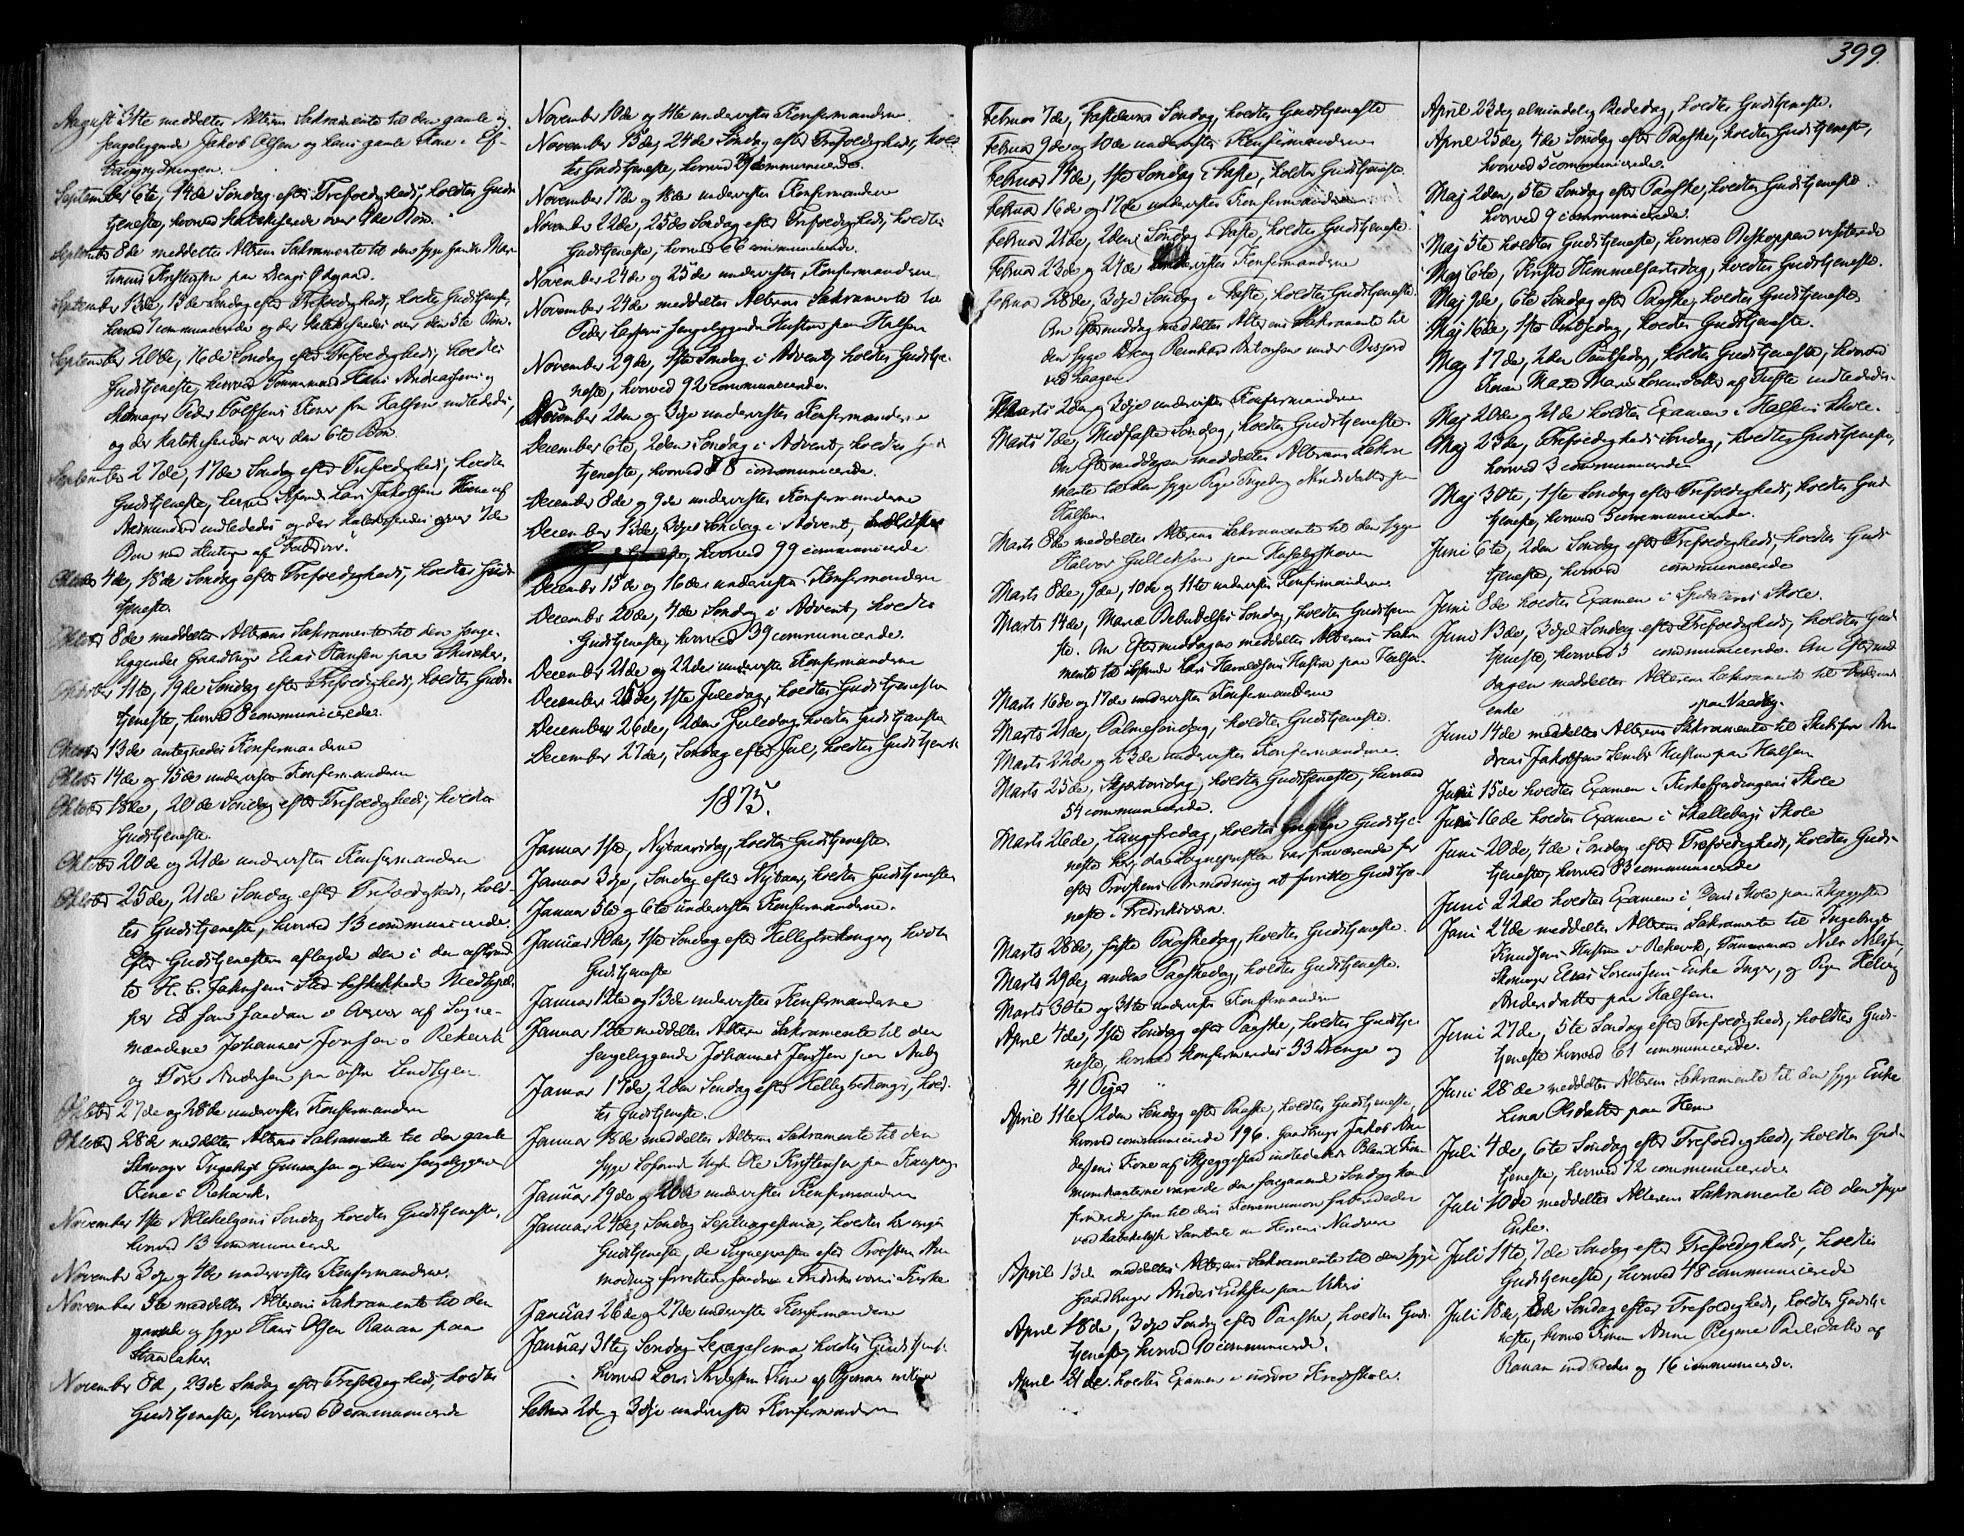 399.
August 31te meddeltes Alterens Sakramente til den gamle og
sengeliggende Jakob Olsen og hans gamle Kone i
September 6te, 14de Søndag efter Trefoldighed, holdtes Guds-
tjeneste, hvorved katekiseredes over 4de Bøn.
September 8de meddeltes Alterens Sakramente til den syge
September 13de, 15de Søndag efter Trefoldighed, holdtes Gudstjeneste,
hvorved 7 communicerede og der katekiseredes over den 5te Bøn.
September 20de, 16de Søndag efter Trefoldighed, holdtes
Gudstjeneste, hvorved Tømmermand Hans Andreassens og
Skomager Peder Tolfsens Koner fra Halsen indlededes,
og der katekiseredes over den 6te Bøn.
September 27de, 17de Søndag efter Trefoldighed, holdtes
Gudstjeneste, hvorved Lars Jakobsens Kone af
indlededes og der katekiseredes over 7de
Bøn med Slutningen af Fadervor.
Oktober 4de, 18de Søndag efter Trefoldighed, holdtes Guds-
tjeneste.
Oktober 8de meddeltes Alterens Sakramente til den senge-
liggende Gaardbruger Elias Hansen paa
Oktober 11te, 19de Søndag efter Trefoldighed, holdtes Guds-
tjeneste, hvorved 8 communicerede.
Oktober 13de antegnedes Konfirmanderne
Oktober 14de og 15de undervistes Konfirmanderne
Oktober 18de, 20de Søndag efter Trefoldighed, holdtes
Gudstjeneste.
Oktober 20de og 21de undervistes Konfirmanderne
Oktober 25de, 21de Søndag efter Trefoldighed, hold-
tes Gudstjeneste, hvorved 13 communicerede.
Efter Gudstjenesten aflagde den i den
af Sogne-
mændene Johannes Jonsen Rekevik
og Tore Andersen paa
Oktober 27de og 28de undervistes Konfirmanderne
Oktober 28de meddeltes Alterens Sakramente til den gamle
Skomager Ingebrigt Gunnarsen og hans sengeliggende
Kone i Rekevik.
November 1ste Allehelgens Søndag holdtes Gudstjeneste,
hvorved 13 communicerede
November 3dje og 4de undervistes Konfirmanderne.
November 5te meddeltes Alterens Sakramente til den
gamle og syge Hans Olsen Ranan paa
November 8de, 23de Søndag efter Trefoldighed, holdtes
Gudstjeneste, hvorved 60 communicerede
November 10de og 11te undervistes Konfirmanderne
November 15de, 24de Søndag efter Trefoldighed, hold-
tes Gudstjeneste, hvorved communicerede.
November 17de og 18de undervistes Konfirmanderne
November 22de, 25de Søndag efter Trefoldighed, holdtes
Gudstjeneste, hvorved 66 communicerede.
November 24de og 25de undervistes Konfirmanderne
November 24de meddeltes Alterens Sakramente til
Peder sengeliggende Hustru paa Halsen
November 29de, 1ste Søndag i Advent, holdtes Gudstje-
neste, hvorved 92 communicerede.
December 2den og 3dje undervistes Konfirmanderne
December 6te, 2den Søndag i Advent, holdtes Guds-
tjeneste, hvorved 88 communicerede.
December 8de og 9de undervistes Konfirmanderne
December 13de, 3dje Søndag i Advent,
hvorved 99 communicerede
December 15de og 16de undervistes Konfirmanderne
December 20de, 4de Søndag i Advent, holdtes
Gudstjeneste, hvorved 39 communicerede.
December 21de og 22de undervistes Konfirmanderne
December 25de, 1ste Juledag, holdtes Gudstjeneste
December 26de, 2den Juledag, holdtes Gudstjeneste
December 27de, Søndag efter Jul, holdtes Gudstjeneste
1875.
Januar 1ste, Nytaarsdag, holdtes Gudstjeneste.
Januar 3dje, Søndag efter Nytaar, holdtes Gudstjeneste
Januar 5te og 6te undervistes Konfirmanderne.
Januar 10de, 1ste Søndag efter Helligtrekonger, holdtes
Gudstjeneste
Januar 12te og 13de undervistes Konfirmanderne
Januar 12te meddeltes Alterens Sakramente til den
sengeliggende Johannes Jensen paa
Januar 17de, 2den Søndag efter Helligtrekonger, hold-
tes Gudstjeneste.
Januar 18de meddeltes Alterens Sakramente til den
syge Ole Kristensen paa
Januar 19de og 20de undervistes Konfirmanderne
Januar 24de, Søndag Septuagesima, holdtes her ingen
Gudstjeneste, da Sognepræsten efter Provstens An-
modning forrettede i Fredriksværns Kirke
Januar 26de og 27de undervistes Konfirmanderne
Januar 31te, Søndag Sexagesima, holdtes Gudstjeneste
hvorved Kone af
Februar 2de og 3dje undervistes Konfirmanderne
Februar 7de, Fastelavns Søndag, holdtes Gudstjeneste
Februar 9de og 10de undervistes Konfirmanderne
Februar 14de, 1ste Søndag i Faste, holdtes Gudstjeneste
Februar 16de og 17de undervistes Konfirmanderne
Februar 21de, 2den Søndag i Faste, holdtes Gudstjeneste
Februar 23de og 24de undervistes Konfirmanderne
Februar 28de, 3dje Søndag i Faste, holdtes Gudstjeneste.
Om Eftermiddag meddeltes Alterens Sakramente til
den syge Dreng Reinhard Antonsen under
ved Laagen
Marts 2den og 3dje undervistes Konfirmanderne
Marts 7de, Midfaste Søndag, holdtes Gudstjeneste.
Om Eftermiddagen meddeltes Alterens Sakra-
mente til den syge Pige Ingeborg paa
Halsen.
Marts 8de meddeltes Alterens Sakramente til den syge
Halvor Gulliksen paa
Marts 8de, 9de, 10de og 11te undervistes Konfirmanderne
Marts 14de, Mariæ Bebudelses Søndag, holdtes Gudstjene-
ste. Om Eftermiddagen meddeltes Alterens Sakra-
mente til Lars Hustru paa Halsen.
Marts 16de og 17de undervistes Konfirmanderne
Marts 21de, Palmesøndag, holdtes Gudstjeneste.
Marts 22de og 23de undervistes Konfirmanderne.
Marts 25de, Skjærtorsdag, holdtes Gudstjeneste, hvorved
54 communicerede.
Marts 26de, Langfredag, holdtes ingen Gudstje-
neste her, da Sognepræsten var fraværende for
efter Provstens Anmodning at forrette Gudstje-
neste i Fredriksværn.
Marts 28de, første Paaskedag, holdtes Gudstjeneste.
Marts 29de, anden Paaskedag, holdtes Gudstjeneste.
Marts 30te og 31te undervistes Konfirmanderne
April 4de, 1ste Søndag efter Paaske, holdtes Gudstje-
neste, hvorved konfirmeredes 33 Drenge og
41 Piger
April 11te, 2den Søndag efter Paaske, holdtes Gudstjeneste,
hvorved communicerede 196. Gaardbruger Jakob An-
dersens Kone af Skjeggestad indlededes. Blandt Kom-
munikanterne vare de den foregaaende Søndag kon-
firmerede,
April 13de meddeltes Alterens Sakramente til den syge
Gaardbruger Anders paa
April 18de, 3dje Søndag efter Paaske, holdtes Guds-
tjeneste, hvorved 10 communicerede.
April 21de holdtes Examen i nordre Kredsskole.
April 23de, almindelig Bededag, holdtes Gudstjeneste.
April 25de, 4de Søndag efter Paaske, holdtes Gudstjeneste,
hvorved 5 communicerede.
Maj 2den, 5te Søndag efter Paaske, holdtes Gudstjeneste
hvorved 9 communicerede.
Maj 5te holdtes Gudstjeneste, hvorved Biskoppen visiterede
Maj 6te, Kristi Himmelfartsdag, holdtes Gudstjeneste.
Maj 9de, 6te Søndag efter Paaske, holdtes Gudstjeneste,
Maj 16de, 1ste Pintsedag, holdtes Gudstjeneste.
Maj 17de, 2den Pintsedag, holdtes Gudstjeneste, hvorved
Konen Marte Marie Lorensdatter af indlededes.
Maj 20de og 21de holdtes Examen i Halsens Skole.
Maj 23de, Trefoldigheds Søndag, holdtes Gudstjeneste,
hvorved 3 communicerede
Maj 30te, 1ste Søndag efter Trefoldighed, holdtes Guds-
tjeneste, hvorved 5 communicerede.
Juni 6te, 2den Søndag efter Trefoldighed, holdtes Guds-
tjeneste, hvorved communicerede
Juni 8de holdtes Examen i Skole.
Juni 13de, 3dje Søndag efter Trefoldighed, holdtes Guds-
tjeneste, hvorved 5 communicerede. Om Eftermid-
dagen meddeltes Alterens Sakramente til
enke paa
Juni 14de meddeltes Alterens Sakramente til An-
dreas Jakobsens Hustru paa Halsen
Juni 15de holdtes Examen i Kirkefjerdingens Skole
Juni 16de holdtes Examen i Skallebergs Skole
Juni 20de, 4de Søndag efter Trefoldighed, holdtes Guds-
tjeneste, hvorved 83 communicerede
Juni 22de holdtes Examen i Skole paa Skjeggestad
Juni 24de meddeltes Alterens Sakramente til Ingebrigt
Knudsens Hustru i Rekevik, Tømmermand Niels Nilsen,
Skomager Elias Sorensens Enke Inger, og Pigen Helvig
Andersdatter paa Halsen.
Juni 27de, 5te Søndag efter Trefoldighed, holdtes Guds-
tjeneste hvorved 61 communicerede.
Juni 28de meddeltes Alterens Sakramente til den syge Enke
Lina Olsdatter paa Hem
Juli 4de, 6te Søndag efter Trefoldighed, holdtes Guds-
tjeneste, hvorved 12 communicerede.
Juli 10de meddeltes Alterens Sakramente til den syge
Enke.
Juli 11te, 7de Søndag efter Trefoldighed, holdtes
Gudstjeneste, hvorved 48 communicerede
Juli 18de, 8de Søndag efter Trefoldighed, holdtes Gudstje-
neste, hvorved Konen Anne Regine Paulsdatter af
Ranan indlededes og 16 communicerede.